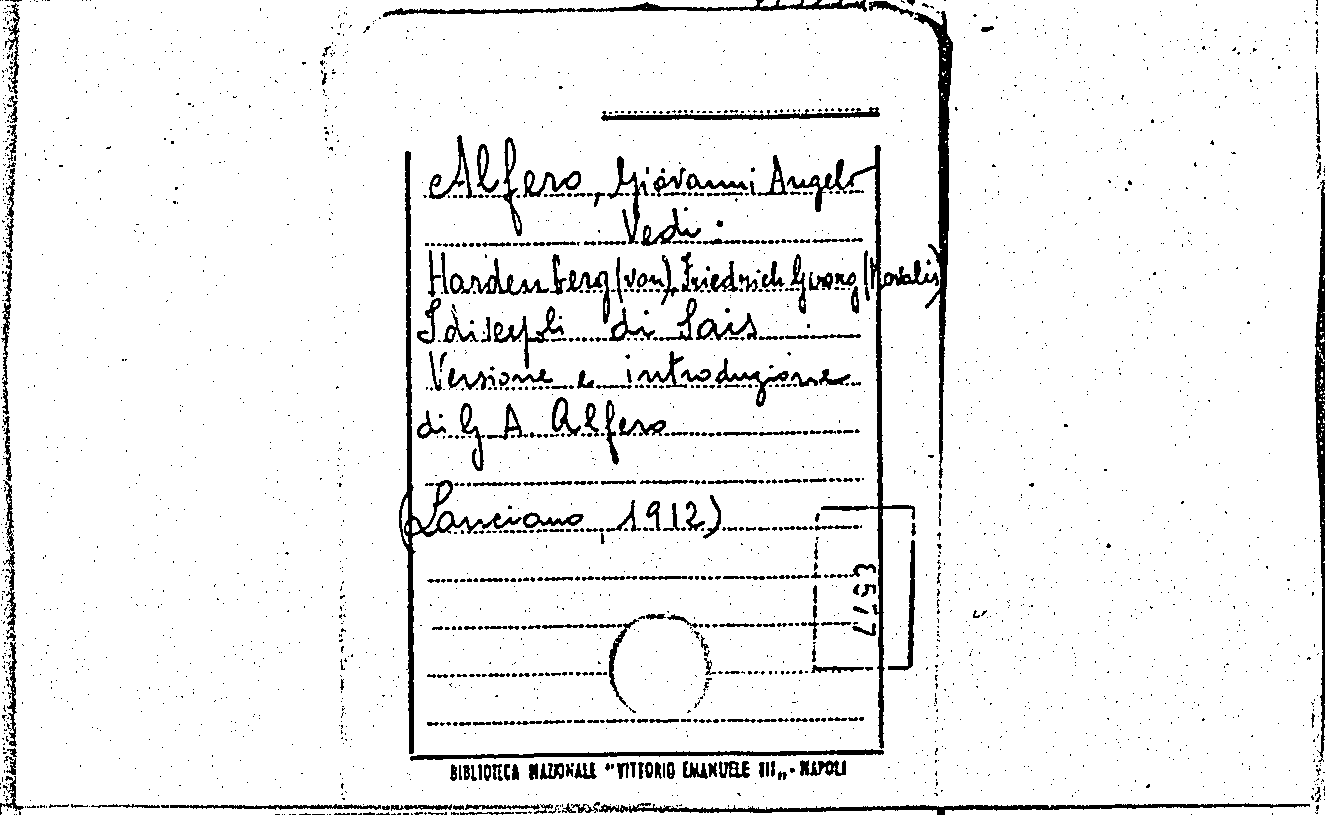 Alfero, Giovanni Angelo
Vedi:
Hardenberg (von), Friedrich Georg (Novalis)
I discepoli di Sais
Versione e introduzione
di G A Alfero
(Lanciano, 1912)
3577
BIBLIOTECA NAZIONALE "VITTORIO EMANUELE III„ - NAPOLI